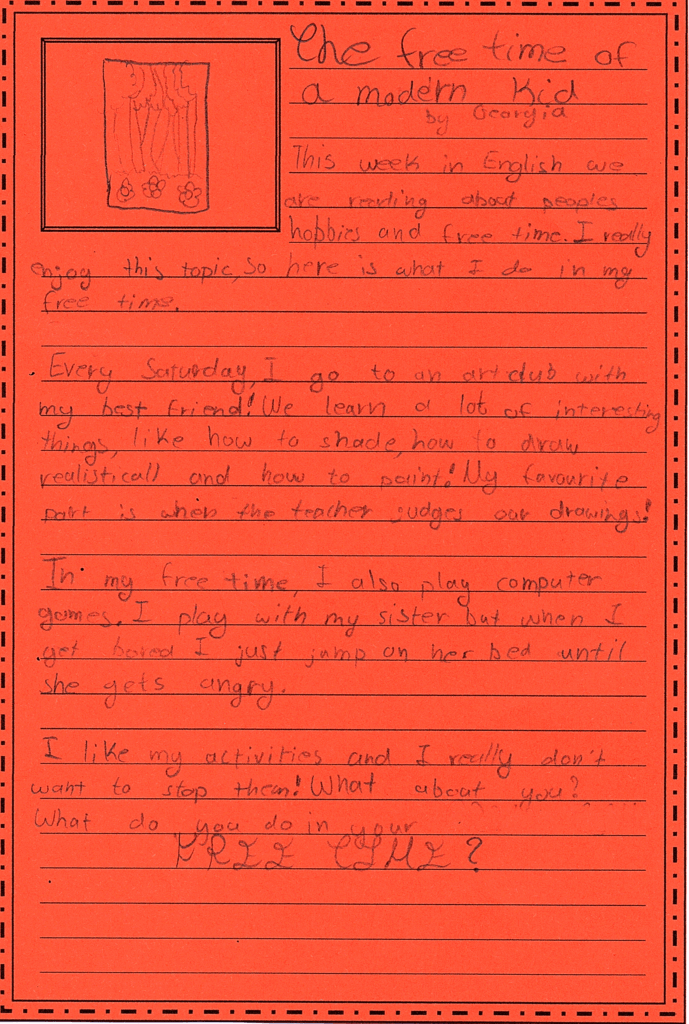 The free time of
a modern Kid
by Georgia
This week in English we
are reading about peoples
hobbies and free time. I really
enjoy this topic, So here is what I do in my
free time.
Every Saturday, I go to an art club with
my best friend! We learn a lot of interesting
things, like how to shade, how to draw
realisticall and how to paint! My favourite
part is when the teacher judges our drawings!
In my free time, I also play computer
games. I play with my sister but when I
get bored I just jump on her bed until
she gets angry.
I like my activities and I really don't
want to stop them! What about you?
What do you do in your
FREE TIME?